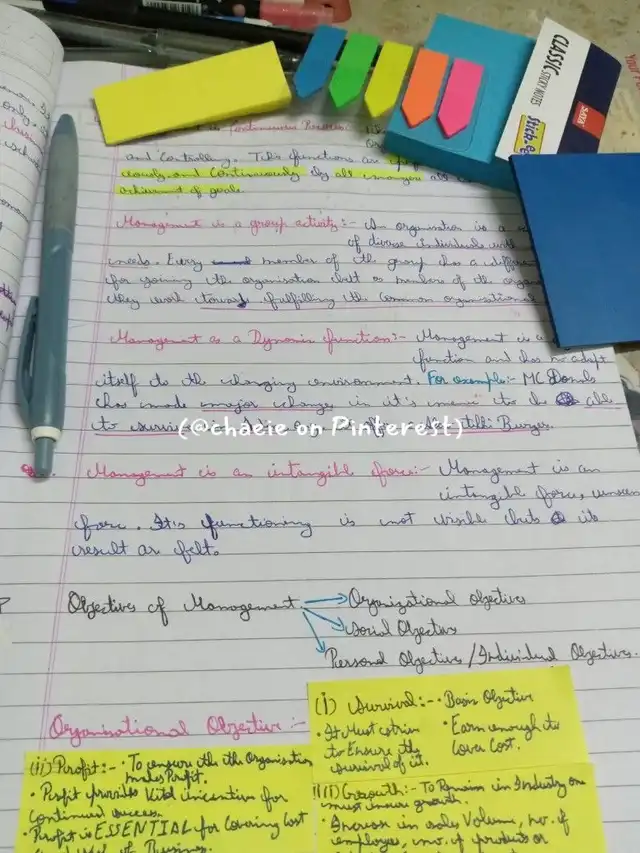 CLASSIC STICKY NOTES
Stick-
is Continuous Process:-
and Controlling. This functions are
ously and Continuously by all managers all
achievement of goals
Management is a group activity:- An organisation is a
of diverse individuals with
needs. Every member of the group has a differ
for joining the organisation but as members of the organ
they work towards fulfilling the common organisational
Management as a Dynamic function:- Management is a
function and has to adapt
itself to the changing environment. For example:- MC Donals
has made major change in it's menu to be able
to survive
(@chaeie on Pinterest)
Tikki Burger.
Management is an intangible force:- Management is an
intangible force, unseen
force. It's functioning is not visible but its
result as felt.
Objectives of Management
Organizational objectives
Social Objectives
Personal Objectives / Individual Objectives.
Organisational Objective:-
(i) Survival:- • Basic Objective
• It Must strive to Ensure the survival of it.
• Earn enough to Cover Cost.
(ii) Profit:- • To ensure the the Organisation makes Profit.
• Profit provides Vital incentive for
continued success.
• Profit is ESSENTIAL for Covering Cost
(iii) Growth:- To Remain in Industry one
must ensure growth.
• Increase in sales Volume, no. of
employees, no. of products or